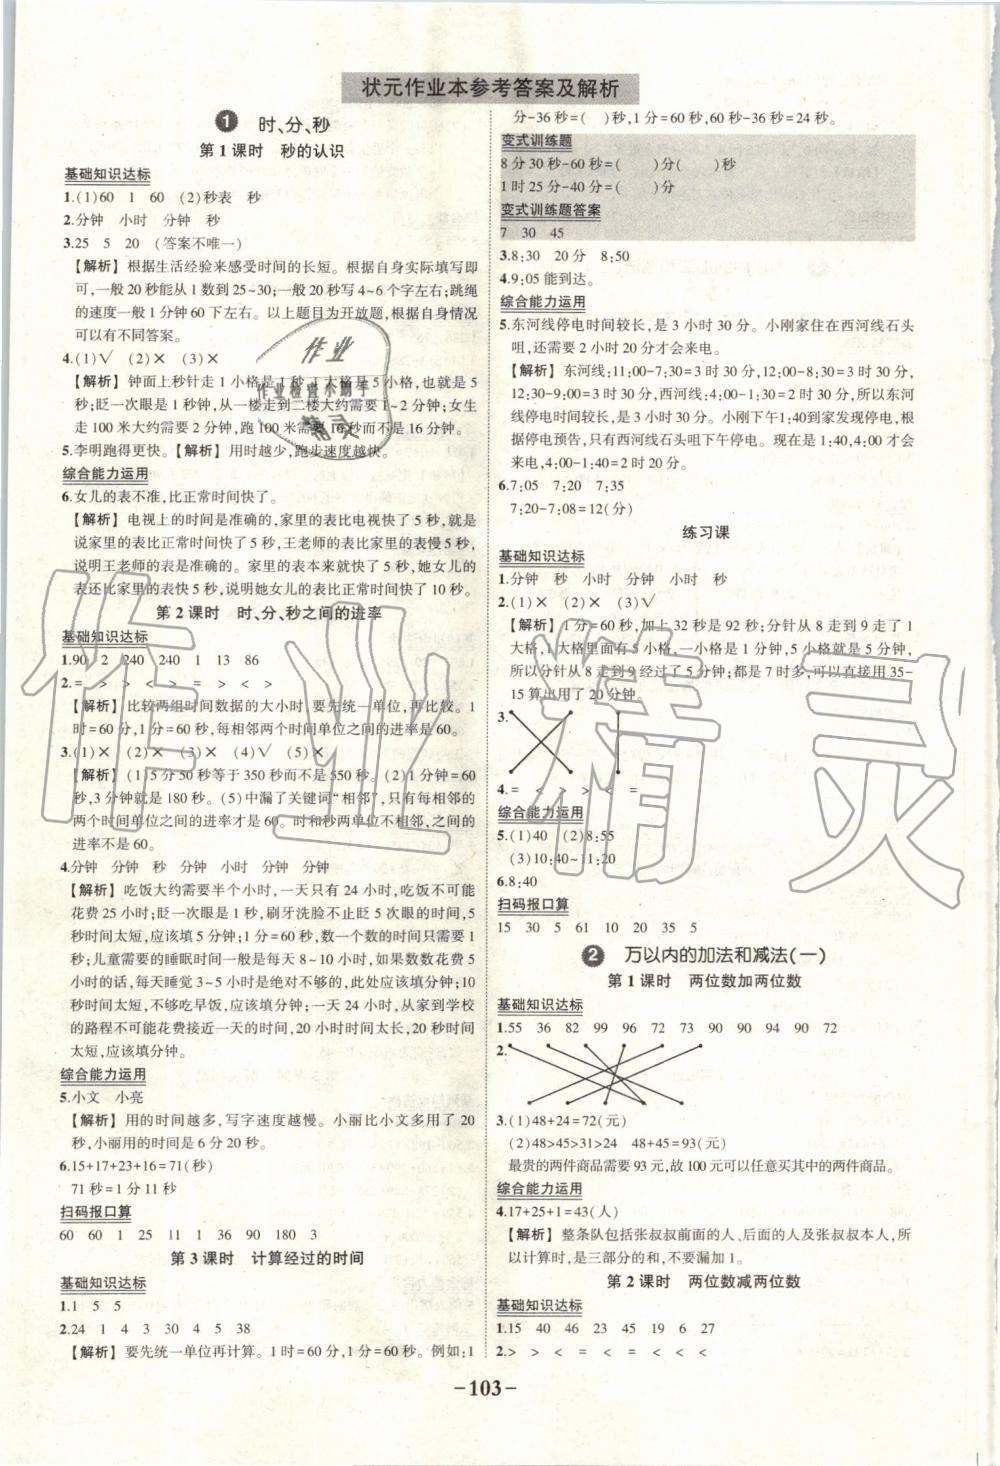 状元作业本参考答案及解析
1 时、分、秒
第1课时 秒的认识
基础知识达标
1.(1)60 1 60 (2)秒表 秒
2.分钟 小时 分钟 秒
3.25 5 20 (答案不唯一)
【解析】根据生活经验来感受时间的长短。根据自身实际填写即
可,一般20秒能从1数到25~30;一般20秒写4~6个字左右;跳绳
的速度一般1分钟60下左右。以上题目为开放题,根据自身情况
可以有不同答案。
4.(1)√ (2)× (3)×
【解析】钟面上秒针走1小格是1秒,1大格是5小格,也就是5
秒;眨一次眼是1秒钟,从一楼走到二楼大约需要1~2分钟;女生
走100米大约需要2分钟,跑100米需要16秒而不是16分钟。
5.李明跑得更快。【解析】用时越少,跑步速度越快。
综合能力运用
6.女儿的表不准,比正常时间快了。
【解析】电视上的时间是准确的,家里的表比电视快了5秒,就是
说家里的表比正常时间快了5秒,王老师的表比家里的表慢5秒,
说明王老师的表是准确的。家里的表本来就快了5秒,她女儿的
表还比家里的表快5秒,说明她女儿的表比正常时间快了10秒。
第2课时 时、分、秒之间的进率
基础知识达标
1.90 2 240 240 1 13 86
2.= > > < > = > < >
【解析】比较两组时间数据的大小时,要先统一单位,再比较。1
时=60分,1分=60秒,每相邻两个时间单位之间的进率是60。
3.(1)× (2)× (3)× (4)√ (5)×
【解析】(1)5分50秒等于350秒而不是550秒。(2)1分钟=60
秒,3分钟就是180秒。(5)中漏了关键词“相邻”,只有每相邻的
两个时间单位之间的进率才是60。时和秒两单位不相邻,之间的
进率不是60。
4.分钟 分钟 秒 分钟 小时 分钟 分钟
【解析】吃饭大约需要半个小时,一天只有24小时,吃饭不可能
花费25小时;眨一次眼是1秒,刷牙洗脸不止眨5次眼的时间,5
秒时间太短,应该填5分钟;1分=60秒,数一个数的时间只需要1
秒;儿童需要的睡眠时间一般是每天8~10小时,如果数数花费5
小时,每天睡觉3~5小时是远远不够的,此处应该填分钟;10秒
时间太短,不够吃早饭,应该填分钟;一天24小时,从家到学校
的路程不可能花费接近一天的时间,20小时时间太长,20秒时间
太短,应该填分钟。
综合能力运用
5.小文 小亮
【解析】用的时间越多,写字速度越慢。小丽比小文多用了20
秒,小丽用的时间是6分20秒。
6.15+17+23+16=71(秒)
71秒=1分11秒
扫码报口算
60 60 1 25 11 1 36 90 180 3
第3课时 计算经过的时间
基础知识达标
1.1 5 5
2.24 1 4 3 30 4 5 38
【解析】要先统一单位再计算。1时=60分,1分=60秒。例如:1
分-36秒=( )秒,1分=60秒,60秒-36秒=24秒。
变式训练题
8分30秒-60秒=( )分( )秒
1时25分-40分=( )分
变式训练题答案
7 30 45
3.8:30 20分 8:50
4.9:05能到达。
综合能力运用
5.东河线停电时间较长,是3小时30分。小刚家住在西河线石头
咀,还需要2小时20分才会来电。
【解析】东河线:11:00-7:30=3时30分,12:00-8:30=3时30分,
12:30-9:00=3时30分;西河线:4:00-1:00=3时,所以东河
线停电时间较长,是3小时30分。小刚下午1:40到家发现停电,根
据停电预告,只有西河线石头咀下午停电。现在是1:40,4:00才会
来电,4:00-1:40=2时20分。
6.7:05 7:20 7:35
7:20-7:08=12(分)
练习课
基础知识达标
1.分钟 秒 小时 分钟 小时 秒
2.(1)× (2)× (3)√
【解析】1分=60秒,加上32秒是92秒;分针从8走到9走了1
大格,1大格里面有5小格,一小格是1分钟,5小格就是5分钟,
所以分针从8走到9经过了5分;都是7时多,可以直接用35-
15算出用了20分钟。
3.
4.= < > > < =
综合能力运用
5.(1)40 (2)8:55
(3)10:40~11:20
6.8:40
扫码报口算
15 30 5 61 10 20 35 5
2 万以内的加法和减法(一)
第1课时 两位数加两位数
基础知识达标
1.55 36 82 99 96 72 73 90 90 94 90 72
2.
3.(1)48+24=72(元)
(2)48>45>31>24 48+45=93(元)
最贵的两件商品需要93元,故100元可以任意买其中的两件商品。
综合能力运用
4.17+25+1=43(人)
【解析】整条队包括张叔叔前面的人、后面的人及张叔叔本人,所
以计算时,是三部分的和,不要漏加1。
第2课时 两位数减两位数
基础知识达标
1.15 40 46 23 45 19 6 27
2.> > < = = < > < <
-103-
作业
作业检查小助手
精灵
作业精灵